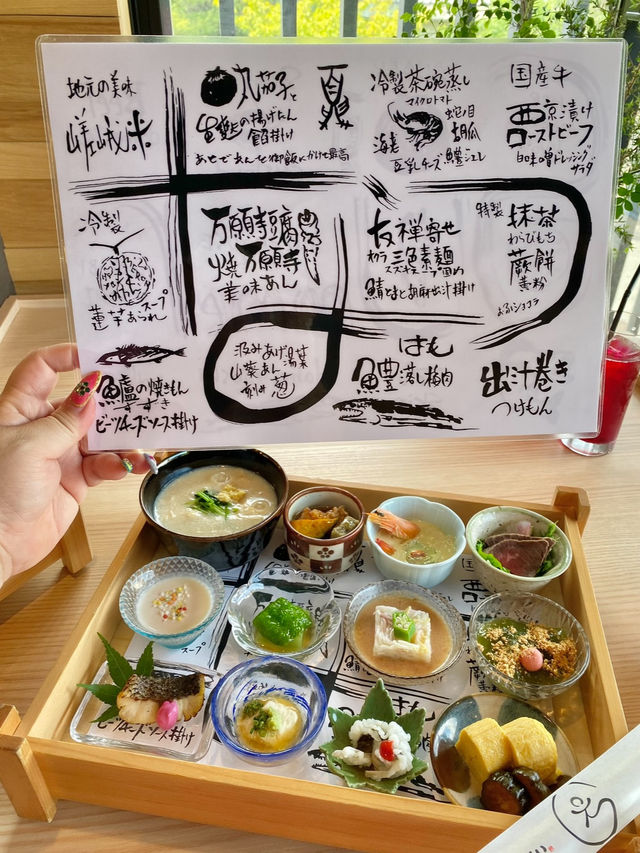 地元の美味
嵯峨米
丸茄子と
鼈甲の揚げたん
餡掛け
あとであんを御飯にかけて最高
夏
冷製茶碗蒸し
マイクロトマト
海老
蛇の目
胡瓜
豆乳チーズ 鱧ジュレ
国産牛
西京漬け
ローストビーフ
白味噌ドレッシング
サラダ
冷製
蓮芋 スープ
あられ
万願寺豆腐
焼万願寺
生の味あん
友禅寄せ
オクラ
三色素麺
鯖とまと胡麻出汁掛け
特製
抹茶
わらびもち
蕨餅
黄粉
おぶぶショコラ
鱸の焼きもん
すずき
ビーツムードソース掛け
汲みあげ湯葉
山菜あん
刻み葱
はも
鱧落し梅肉
出汁巻き
つけもん
スープ
ビーツムードソース掛け